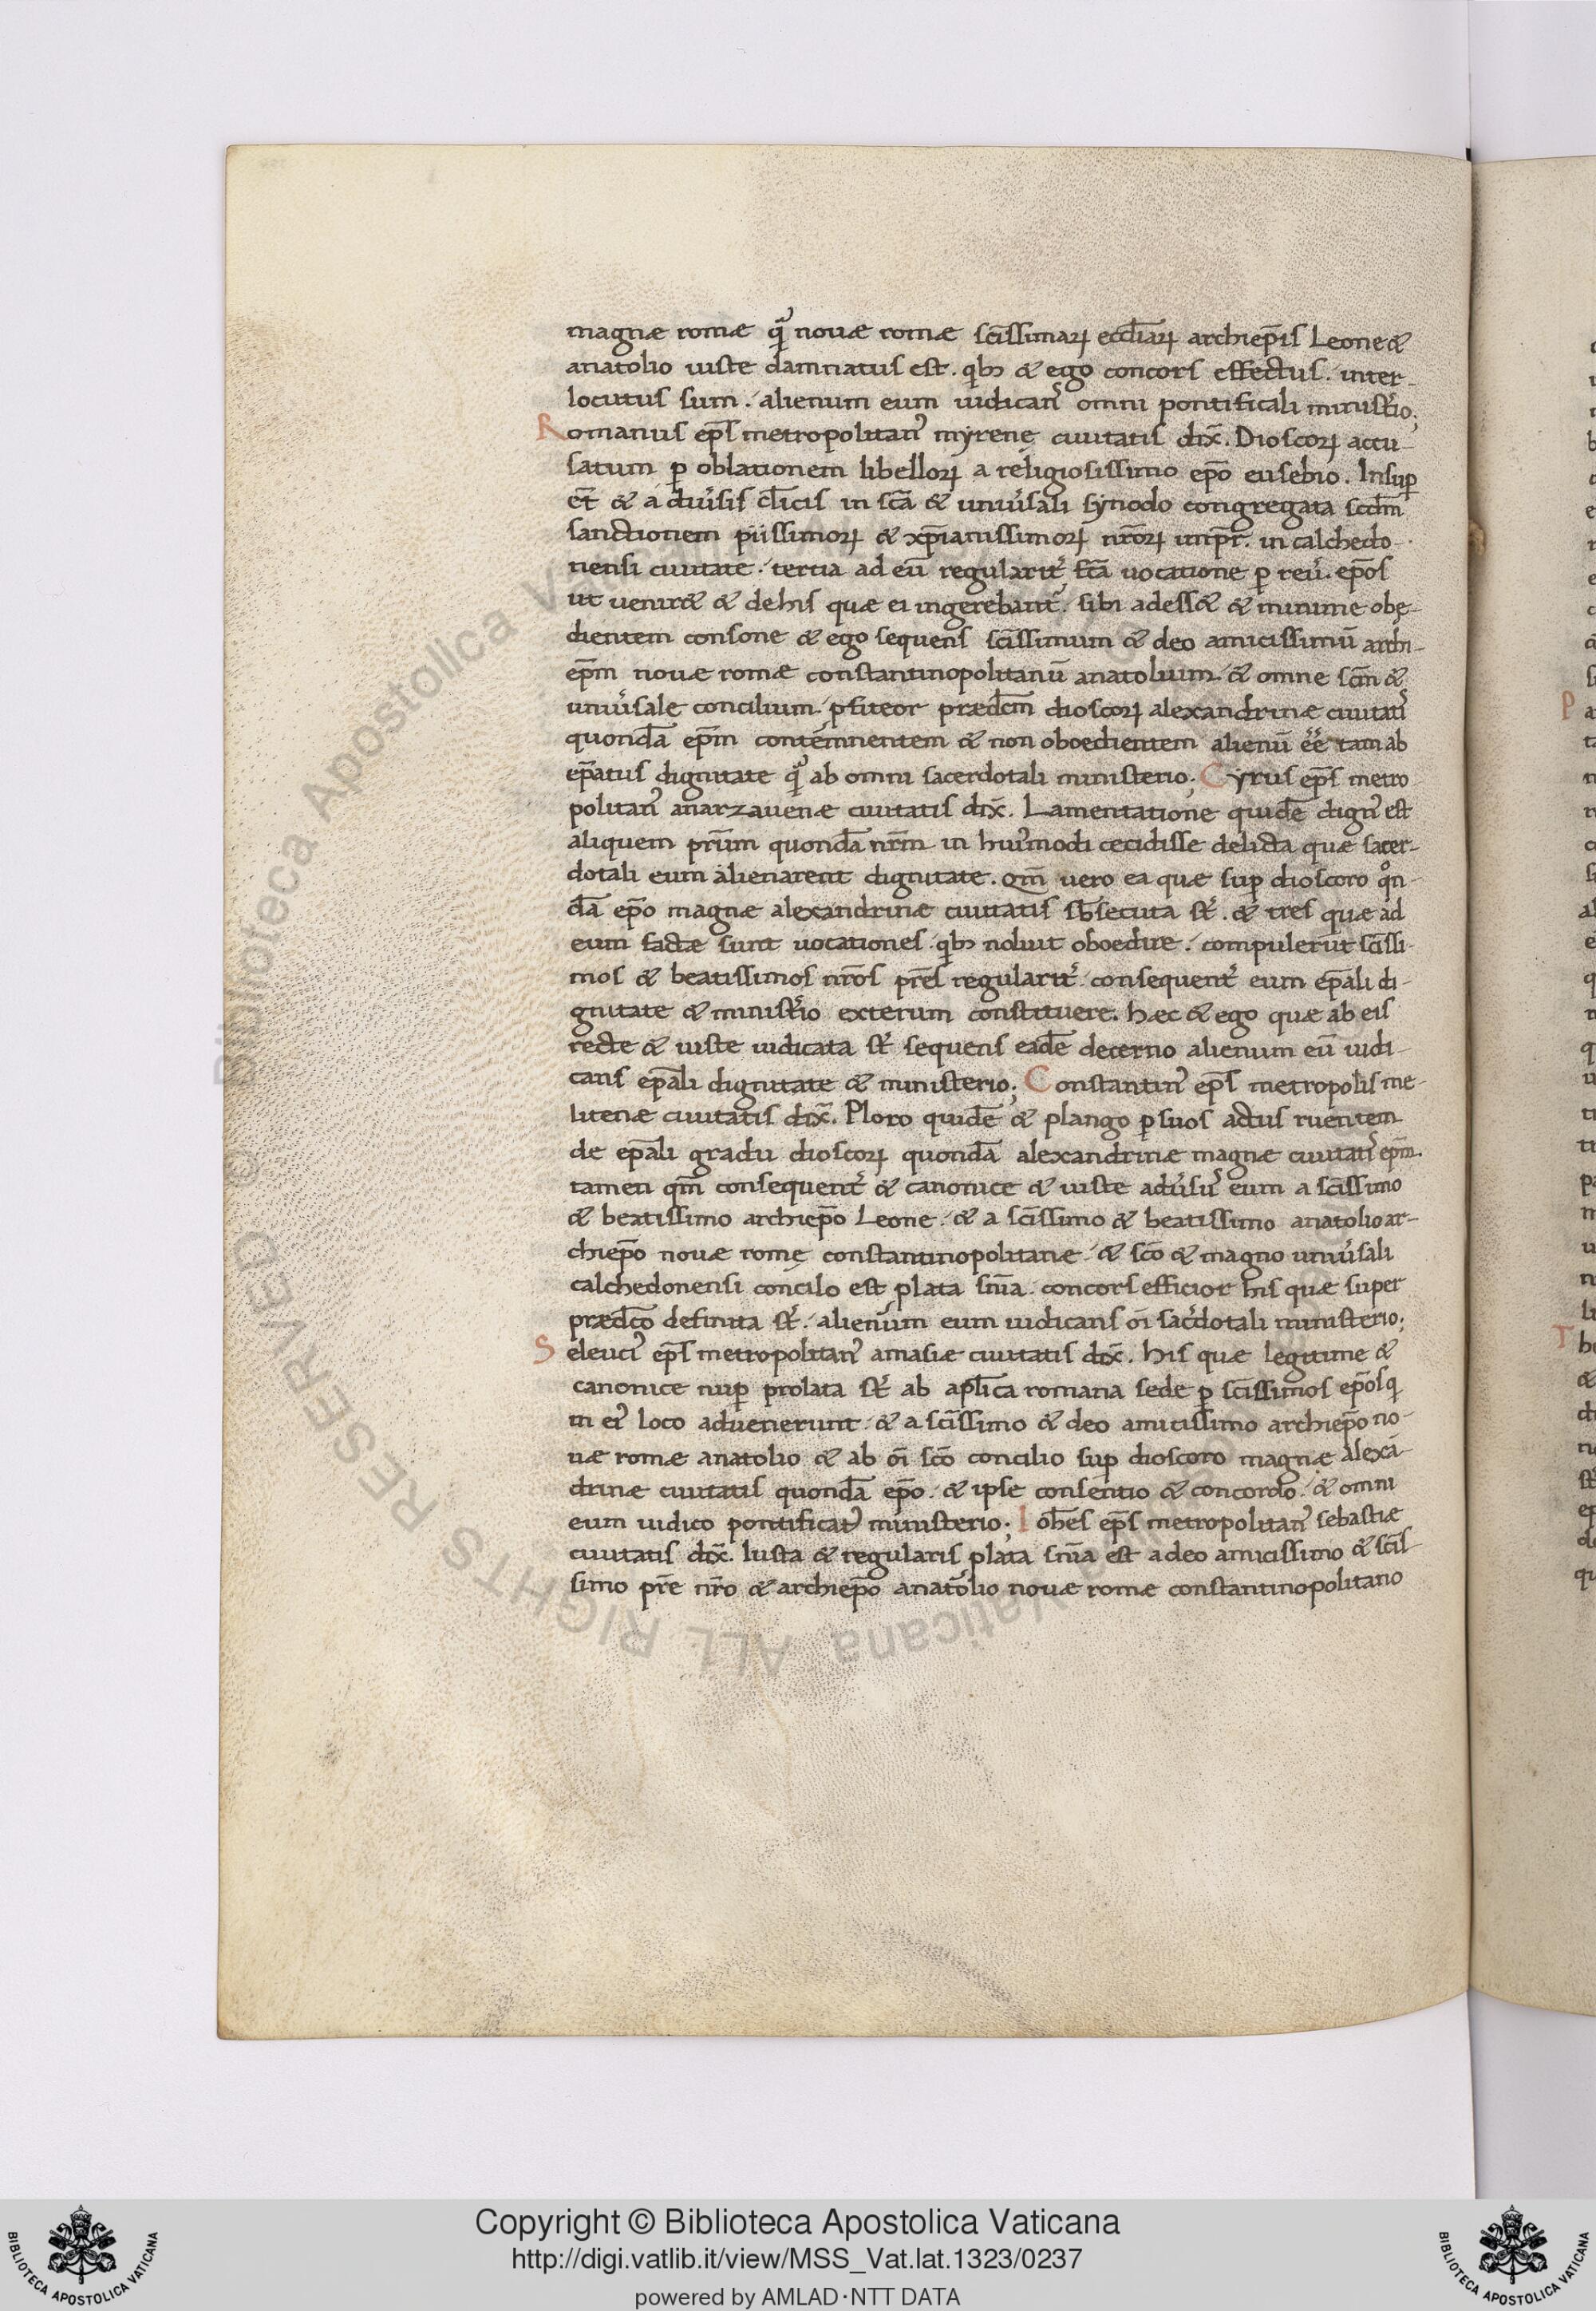 magnæ romæ q̃ nouæ romæ sc̃issimaꝝ eccl̃iaꝝ archiep̃is Leone &
anatolio iuste damnatus est. qbꝫ & ego concors effectus. inter-
locutus sum. alienum eum iudican᷒ omni pontificali minist̃io;
Romanus ep̃s metropolitan᷒ myrenę ciuitatis dix̃. Dioscoꝝ accu-
satum ꝑ oblationem libelloꝝ a religiosissimo ep̃o eusebio. Insuꝑ
et̃ & a diũsis cl̃icis in sc̃a & uniũsali synodo congregata scd̃m
sanctionem piissimoꝝ & xp̃ianissimoꝝ nr̃oꝝ impr̃. in calchedo-
nensi ciuitate. tertia ad eũ regularit̃ fc̃a uocatione ꝑ reũ. ep̃os
ut uenir& & dehis quæ ei ingerebant̃. sibi adess& & minime obę-
dientem consone & ego sequens sc̃issimum & deo amicissimũ archi-
ep̃m nouæ romæ constantinopolitanũ anatolium. & omne sc̃m &
uniũsale concilium. ꝓfiteor prædc̃m dioscoꝝ alexandrinæ ciuitati᷒
quondã ep̃m contemnentem & non oboedientem alienũ ẽẽ tam ab
ep̃atus dignitate q̃ ab omni sacerdotali ministerio; Cyrus ep̃s metro
politan᷒ anarzauenæ ciuitatis dix̃. Lamentatione quidẽ dign᷒ est
aliquem pr̃um quondã nr̃m in hui᷒modi cecidisse delicta quæ sacer-
dotali eum alienarent dignitate. Qm̃ uero ea quæ suꝑ dioscoro qͦn-
dã ep̃o magnæ alexandrinæ ciuitatis sb̃secuta st̃. & tres quæ ad
eum factæ sunt uocationes. qbꝫ noluit oboedire. compulerũt sc̃issi-
mos & beatissimos nr̃os pr̃es regularit̃. consequent̃ eum ep̃ali di-
gnitate & minist̃io exterum constituere. hæc & ego quæ ab eis
recte & iuste iudicata st̃ sequens eadẽ decerno alienum eũ iudi-
cans ep̃ali dignitate & ministerio; Constantin᷒ ep̃s metropolis me-
litenæ ciuitatis dix̃. Ploro quidẽ & plango ꝑ suos actus ruentem
de ep̃ali gradu dioscoꝝ quondã alexandrinæ magnæ ciuitati᷒ ep̃m.
tamen qm̃ consequent̃ & canonice & iuste adũsu᷒ eum a sc̃issimo
& beatissimo archiep̃o Leone. & a sc̃issimo & beatissimo anatolio ar-
chiep̃o nouæ romę constantinopolitanæ. & sc̃o & magno uniũsali
calchedonensi concilo est ꝓlata sñia. concors efficior his quæ super
prædc̃o definita st̃. alienum eum iudicans oĩ sac̃dotali ministerio;
Seleuci᷒ ep̃s metropolitan᷒ amasiæ ciuitatis dix̃. his quæ legitime &
canonice nuꝑ prolata st̃ ab apl̃ica romana sede ꝑ sc̃issimos ep̃os q
in ei᷒ loco aduenerunt. & a sc̃issimo & deo amicissimo archiep̃o no-
uæ romæ anatolio & ab oĩ sc̃o concilio suꝑ dioscoro magnæ alexã-
drinæ ciuitatis quondã ep̃o. & ipse consentio & concordo. & omni
eum iudico pontificat᷒ ministerio; Ioh̃es ep̃s metropolitan᷒ sebastiæ
ciuitatis dix̃. Iusta & regularis ꝓlata sñia est a deo amicissimo & sc̃is-
simo pr̃e nr̃o & archiep̃o anatolio nouæ romæ constantinopolitano
Biblioteca Apostolica Vaticana ALL RIGHTS RESERVED ©
Copyright © Biblioteca Apostolica Vaticana
http://digi.vatlib.it/view/MSS_Vat.lat.1323/0237
powered by AMLAD·NTT DATA
BIBLIOTECA APOSTOLICA VATICANA
BIBLIOTECA APOSTOLICA VATICANA